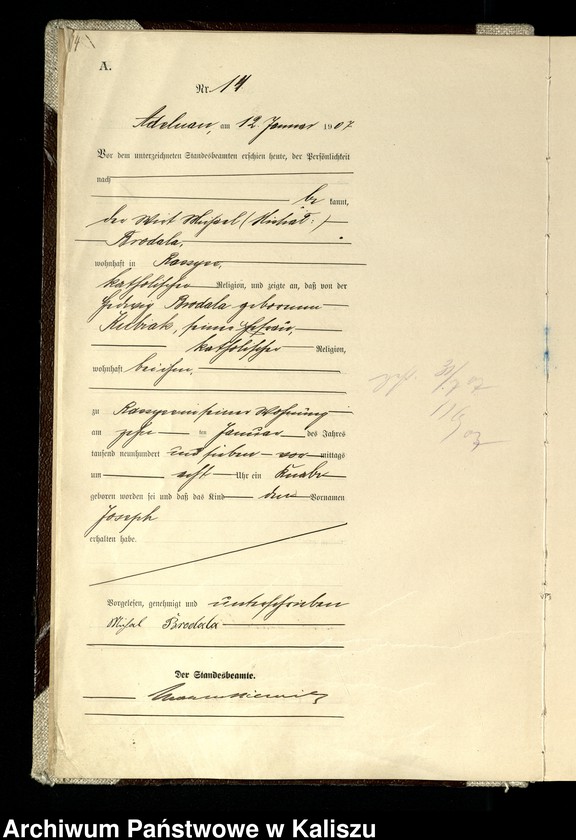 14
A.
Nr. 14
Adelnau, am 12. Januar 1907.
Vor dem unterzeichneten Standesbeamten erschien heute, der Persönlichkeit
nach
be kannt,
der Wirt Michael (Michał:)
Brodala,
wohnhaft in
katholischer Religion, und zeigte an, daß von der
Hedwig Brodala geborenen
Kelbiak, seiner Ehefrau,
katholischer Religion,
wohnhaft bei ihm,
zu in seiner Wohnung
am zehn ten Januar des Jahres
tausend neunhundert und sieben vor mittags
um acht Uhr ein Knabe
geboren worden sei und daß das Kind den Vornamen
Joseph
erhalten habe.
Vorgelesen, genehmigt und unterschrieben
Michał Brodala
Der Standesbeamte.
VPS
Archiwum Państwowe w Kaliszu